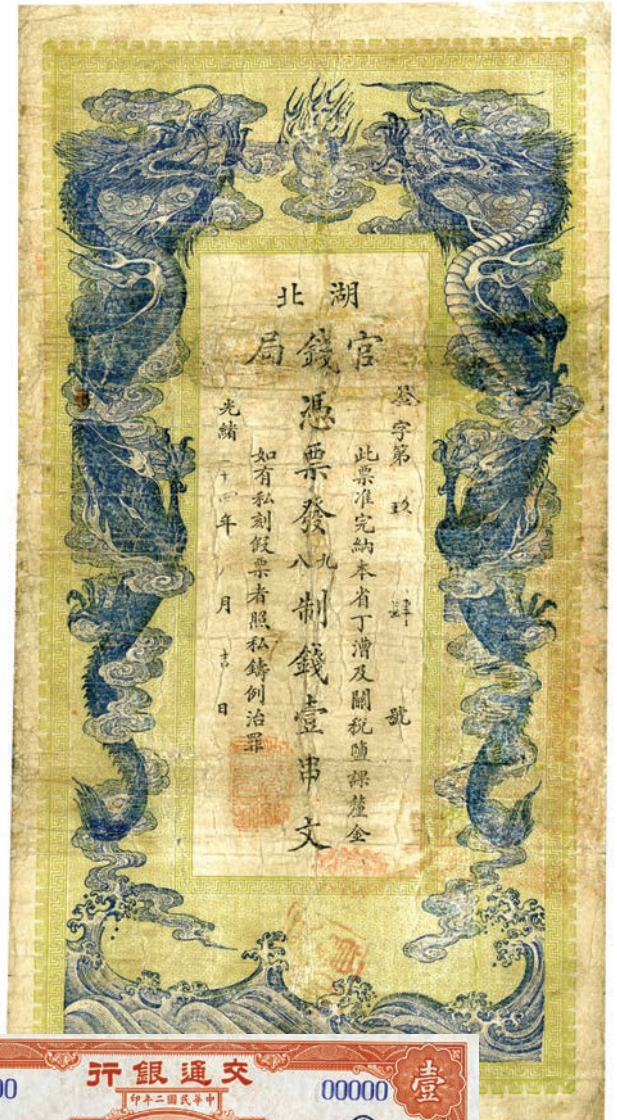 湖北
官錢局
登字第 玖 肆 號
此票准完納本省丁漕及關稅鹽課釐金
憑票發九八制錢壹串文
如有私刻假票者照私鑄例治罪
光緒二十四年 月吉日
交通銀行
中華民國二年印
00
00000
壹